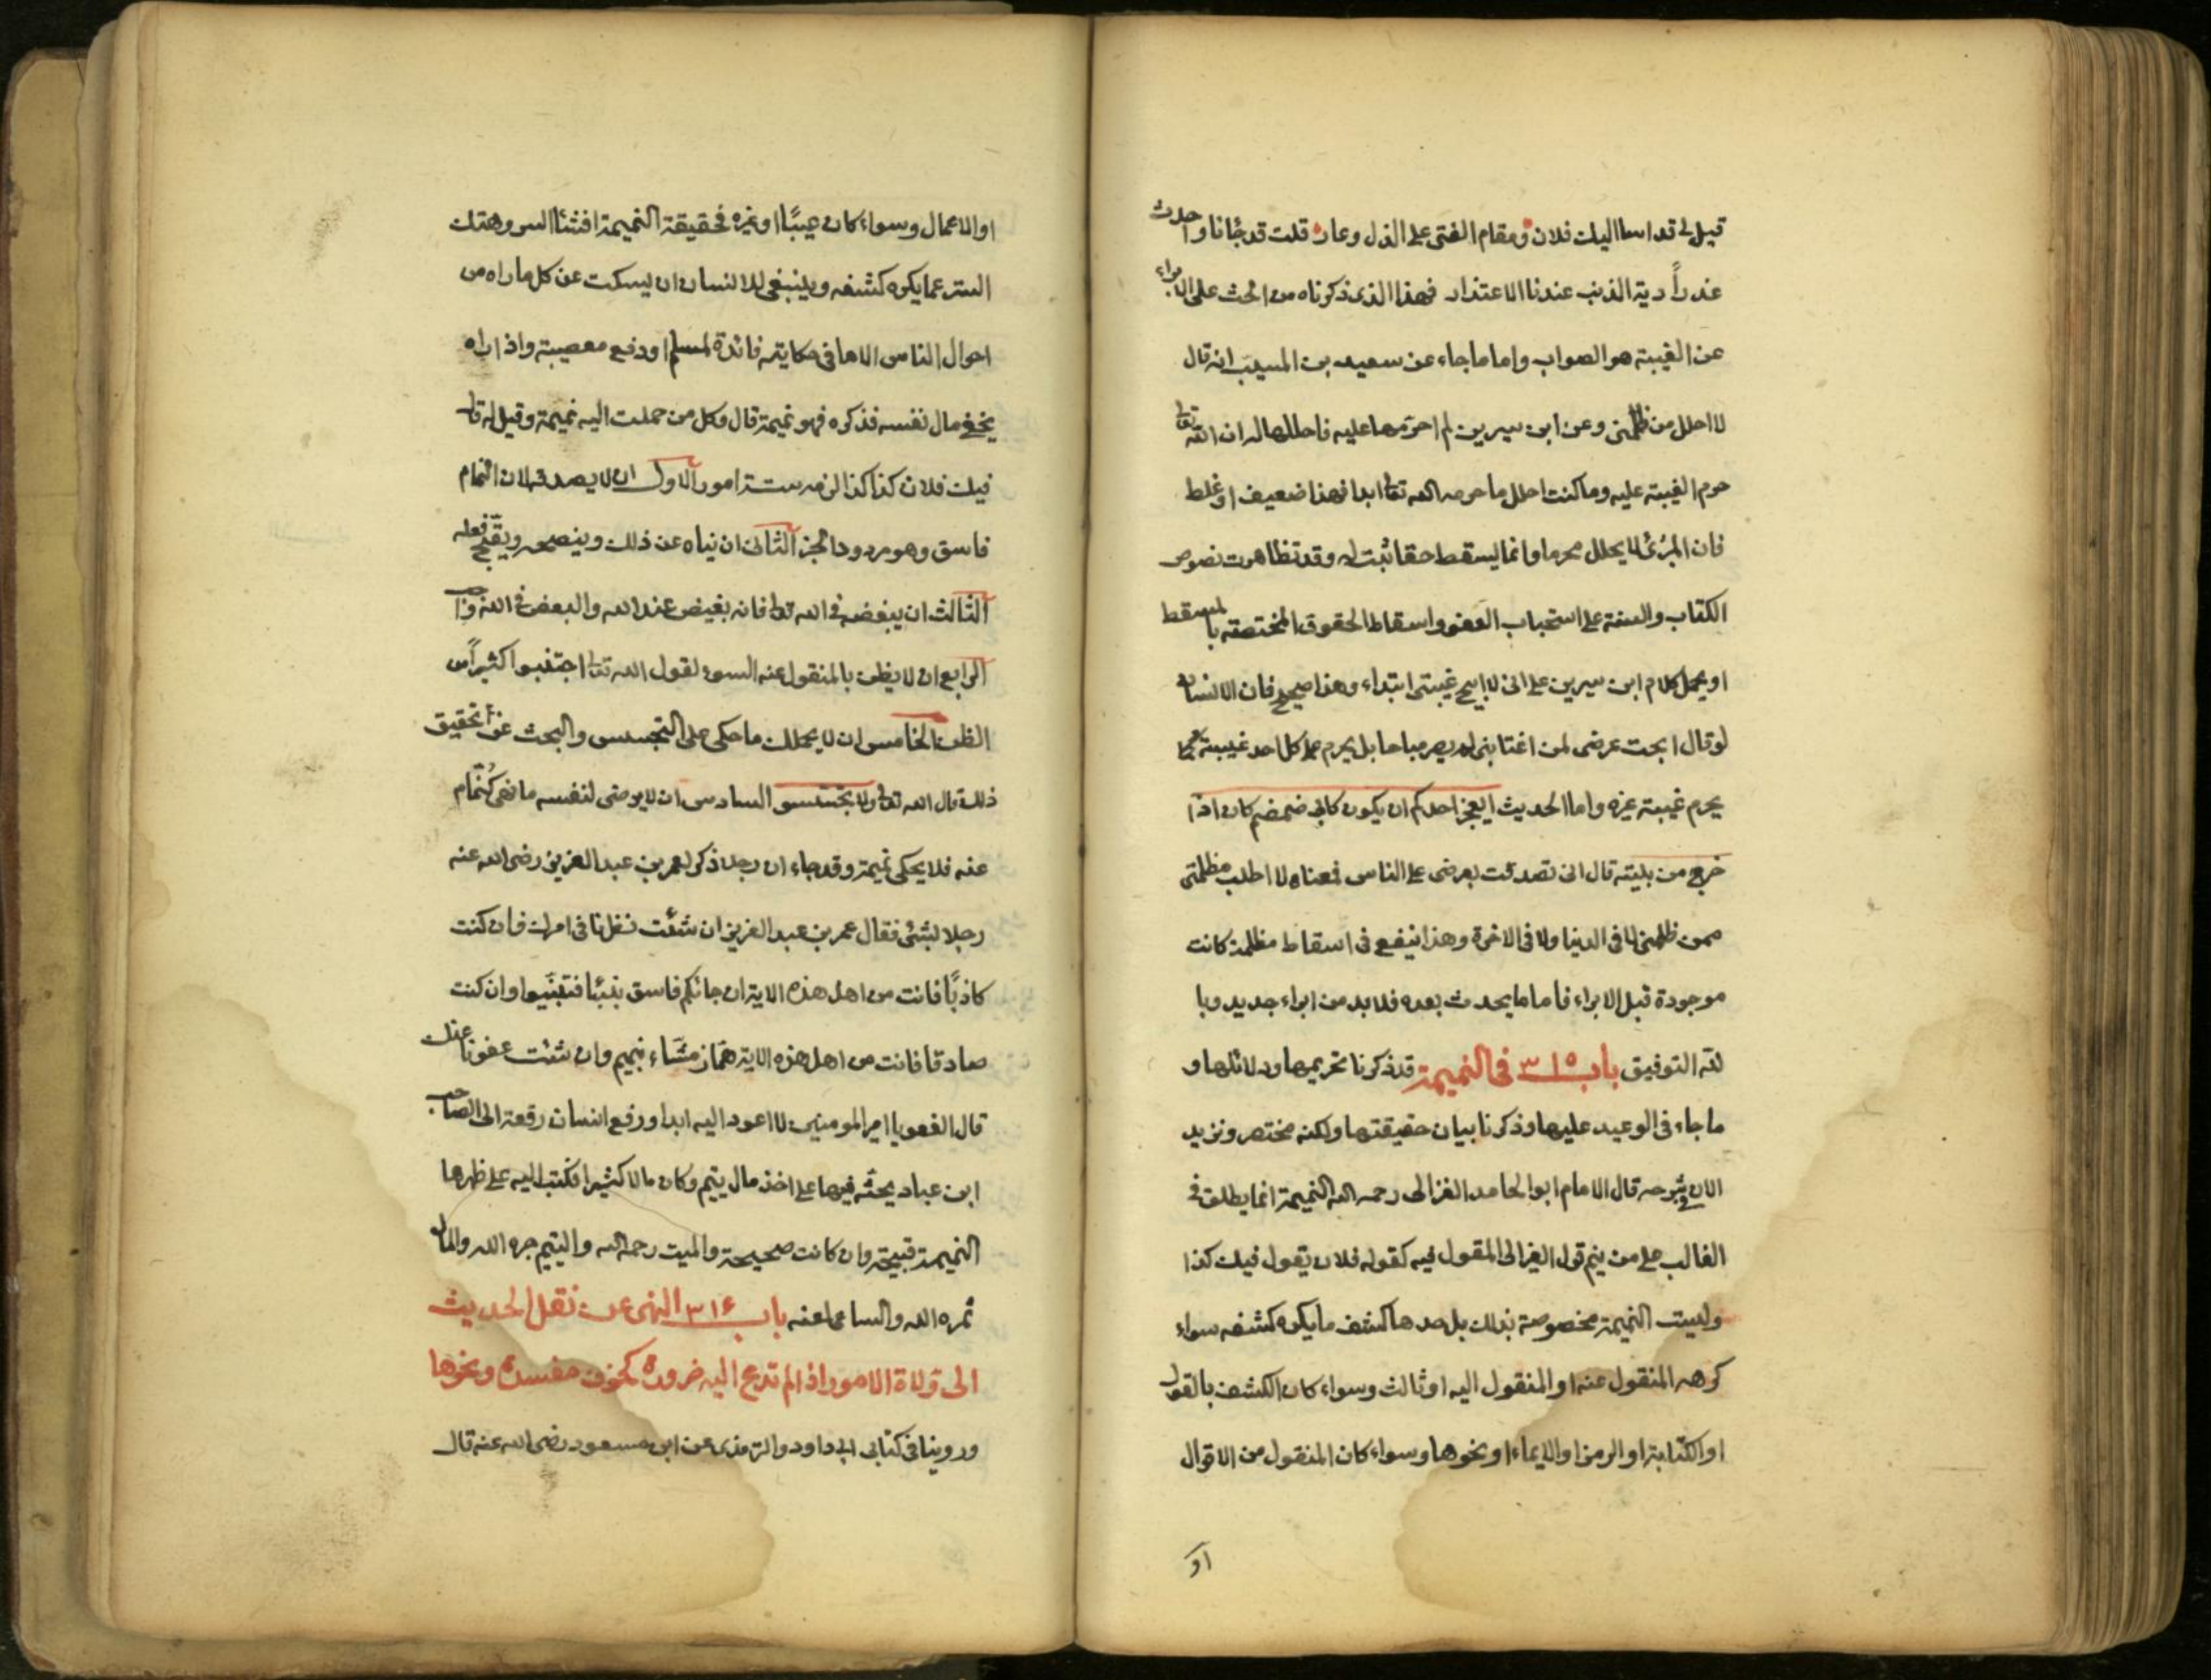 قيل لي قد اسا اليك فلان ومقام الفتى على الذل وعار قلت قد جانا واحدث
عذراً دية الذنب عندنا الاعتذار فهذا الذى ذكرناه من الحث على الابراء
عن الغيبة هو الصواب واما ما جاء عن سعيد بن المسيب انه قال
لا احلل من ظلمنى وعن ابن سيرين لم احرمها عليه فاحللها له ان الله تعالى
حرم الغيبة عليه وما كنت احلل ما حرمه الله تعالى ابدا فهذا ضعيف او غلط
فان المبرئ لا يحلل محرما وانما يسقط حقا ثبت له وقد تظاهرت نصوص
الكتاب والسنة على استحباب العفو واسقاط الحقوق المختصة بالمسقط
او يحمل كلام ابن سيرين على انى لا ابيح غيبتى ابتداء وهذا صحيح فان الانسان
لو قال ابحت عرضى لمن اغتابنى لم يصر مباحا بل يحرم على كل احد غيبته كما
يحرم غيبة غيره واما الحديث ايعجز احدكم ان يكون كابى ضمضم كان اذا
خرج من بيته قال انى تصدقت بعرضى على الناس فمعناه لا اطلب مظلمتى
ممن ظلمنى لا فى الدنيا ولا فى الاخرة وهذا ينفع فى اسقاط مظلمة كانت
موجودة قبل الابراء فاما ما يحدث بعده فلا بد من ابراء جديد وبا
لله التوفيق باب ٣١٥ فى النميمة قد ذكرنا تحريمها ودلائلها و
ما جاء فى الوعيد عليها وذكرنا بيان حقيقتها ولكنه مختصر ونزيد
الان فى شرحه قال الامام ابو الحامد الغزالى رحمه الله النميمة انما يطلق فى
الغالب على من ينم قول الغير الى المقول فيه كقوله فلان يقول فيك كذا
وليست النميمة مخصوصة بذلك بل حدها كشف ما يكره كشفه سواء
كرهه المنقول عنه او المنقول اليه او ثالث وسواء كان الكشف بالقول
او الكتابة او الرمز او الايماء او نحوها وسواء كان المنقول من الاقوال
او
او الاعمال وسواء كان عيبًا او غيره فحقيقة النميمة افشا السر وهتك
الستر عما يكره كشفه وينبغى للانسان ان يسكت عن كل ما راه من
احوال الناس الا ما فى حكايته فائدة لمسلم او دفع معصية واذا راه
يخفى مال نفسه فذكره فهو نميمة قال وكل من حملت اليه نميمة وقيل له قال
فيك فلان كذا كذا لزمه ستة امور الاول ان لا يصدقه لان النمام
فاسق وهو مردود الخبر الثانى ان نهاه عن ذلك وينصحه ويقبح فعله
الثالث ان يبغضه فى الله تعالى فانه بغيض عند الله والبغض فى الله واجب
الرابع ان لا يظن بالمنقول عنه السوء لقول الله تعالى اجتنبوا كثيراً من
الظن الخامس ان لا يحملك ما حكى على التجسس والبحث عن تحقيق
ذلك قال الله تعالى ولا تجسسو السادس ان لا يرضى لنفسه ما نهى النمام
عنه فلا يحكى نميمة وقد جاء ان رجلا ذكر لعمر بن عبد العزيز رضى الله عنه
رجلا بشئ فقال عمر بن عبد العزيز ان شئت نظرنا فى امرك فان كنت
كاذبًا فانت من اهل هذه الاية ان جائكم فاسق بنبا فتبينوا وان كنت
صادقا فانت من اهل هذه الاية هماز مشاء بنميم وان شئت عفونا عنك
قال العفو يا امير المومنين لا اعود اليه ابدا ورفع انسان رقعة الى الصاحب
ابن عباد يحثه فيها على اخذ مال يتيم وكان مالا كثيرا فكتب اليه على ظهرها
النميمة قبيحة وان كانت صحيحة والميت رحمه الله واليتيم جبره الله والمال
ثمره الله والساعى لعنه باب ٣١٦ النهى عن نقل الحديث
الى ولاة الامور اذا لم تدع اليه ضرورة كخوف مفسدة ونحوها
وروينا فى كتابى ابى داود والترمذى عن ابن مسعود رضى الله عنه قال